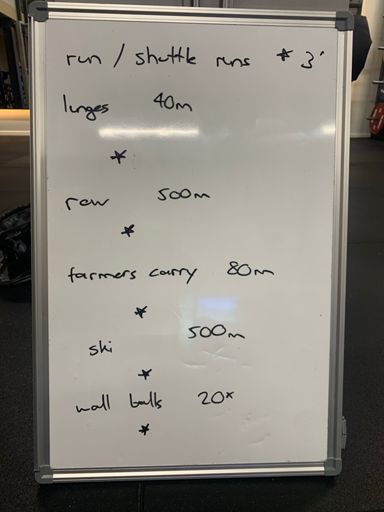 run / shuttle runs * 3'
lunges 40m
*
row 500m
*
farmers carry 80m
*
ski 500m
*
wall balls 20x
*